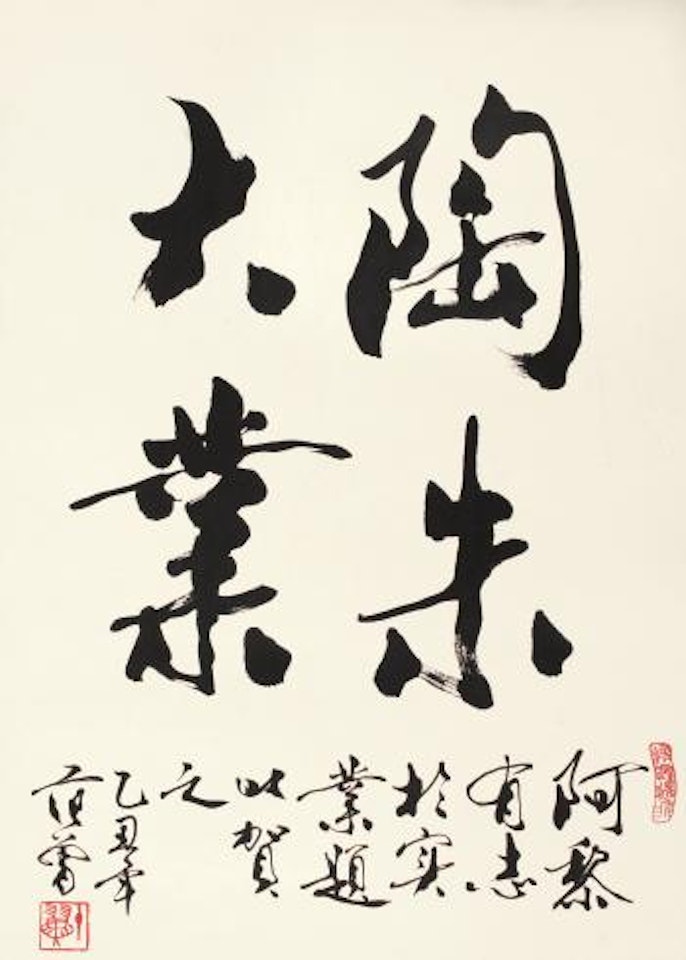 陶朱
大業
阿黎
有志
於实
業題
以賀
之
乙丑年
范曾